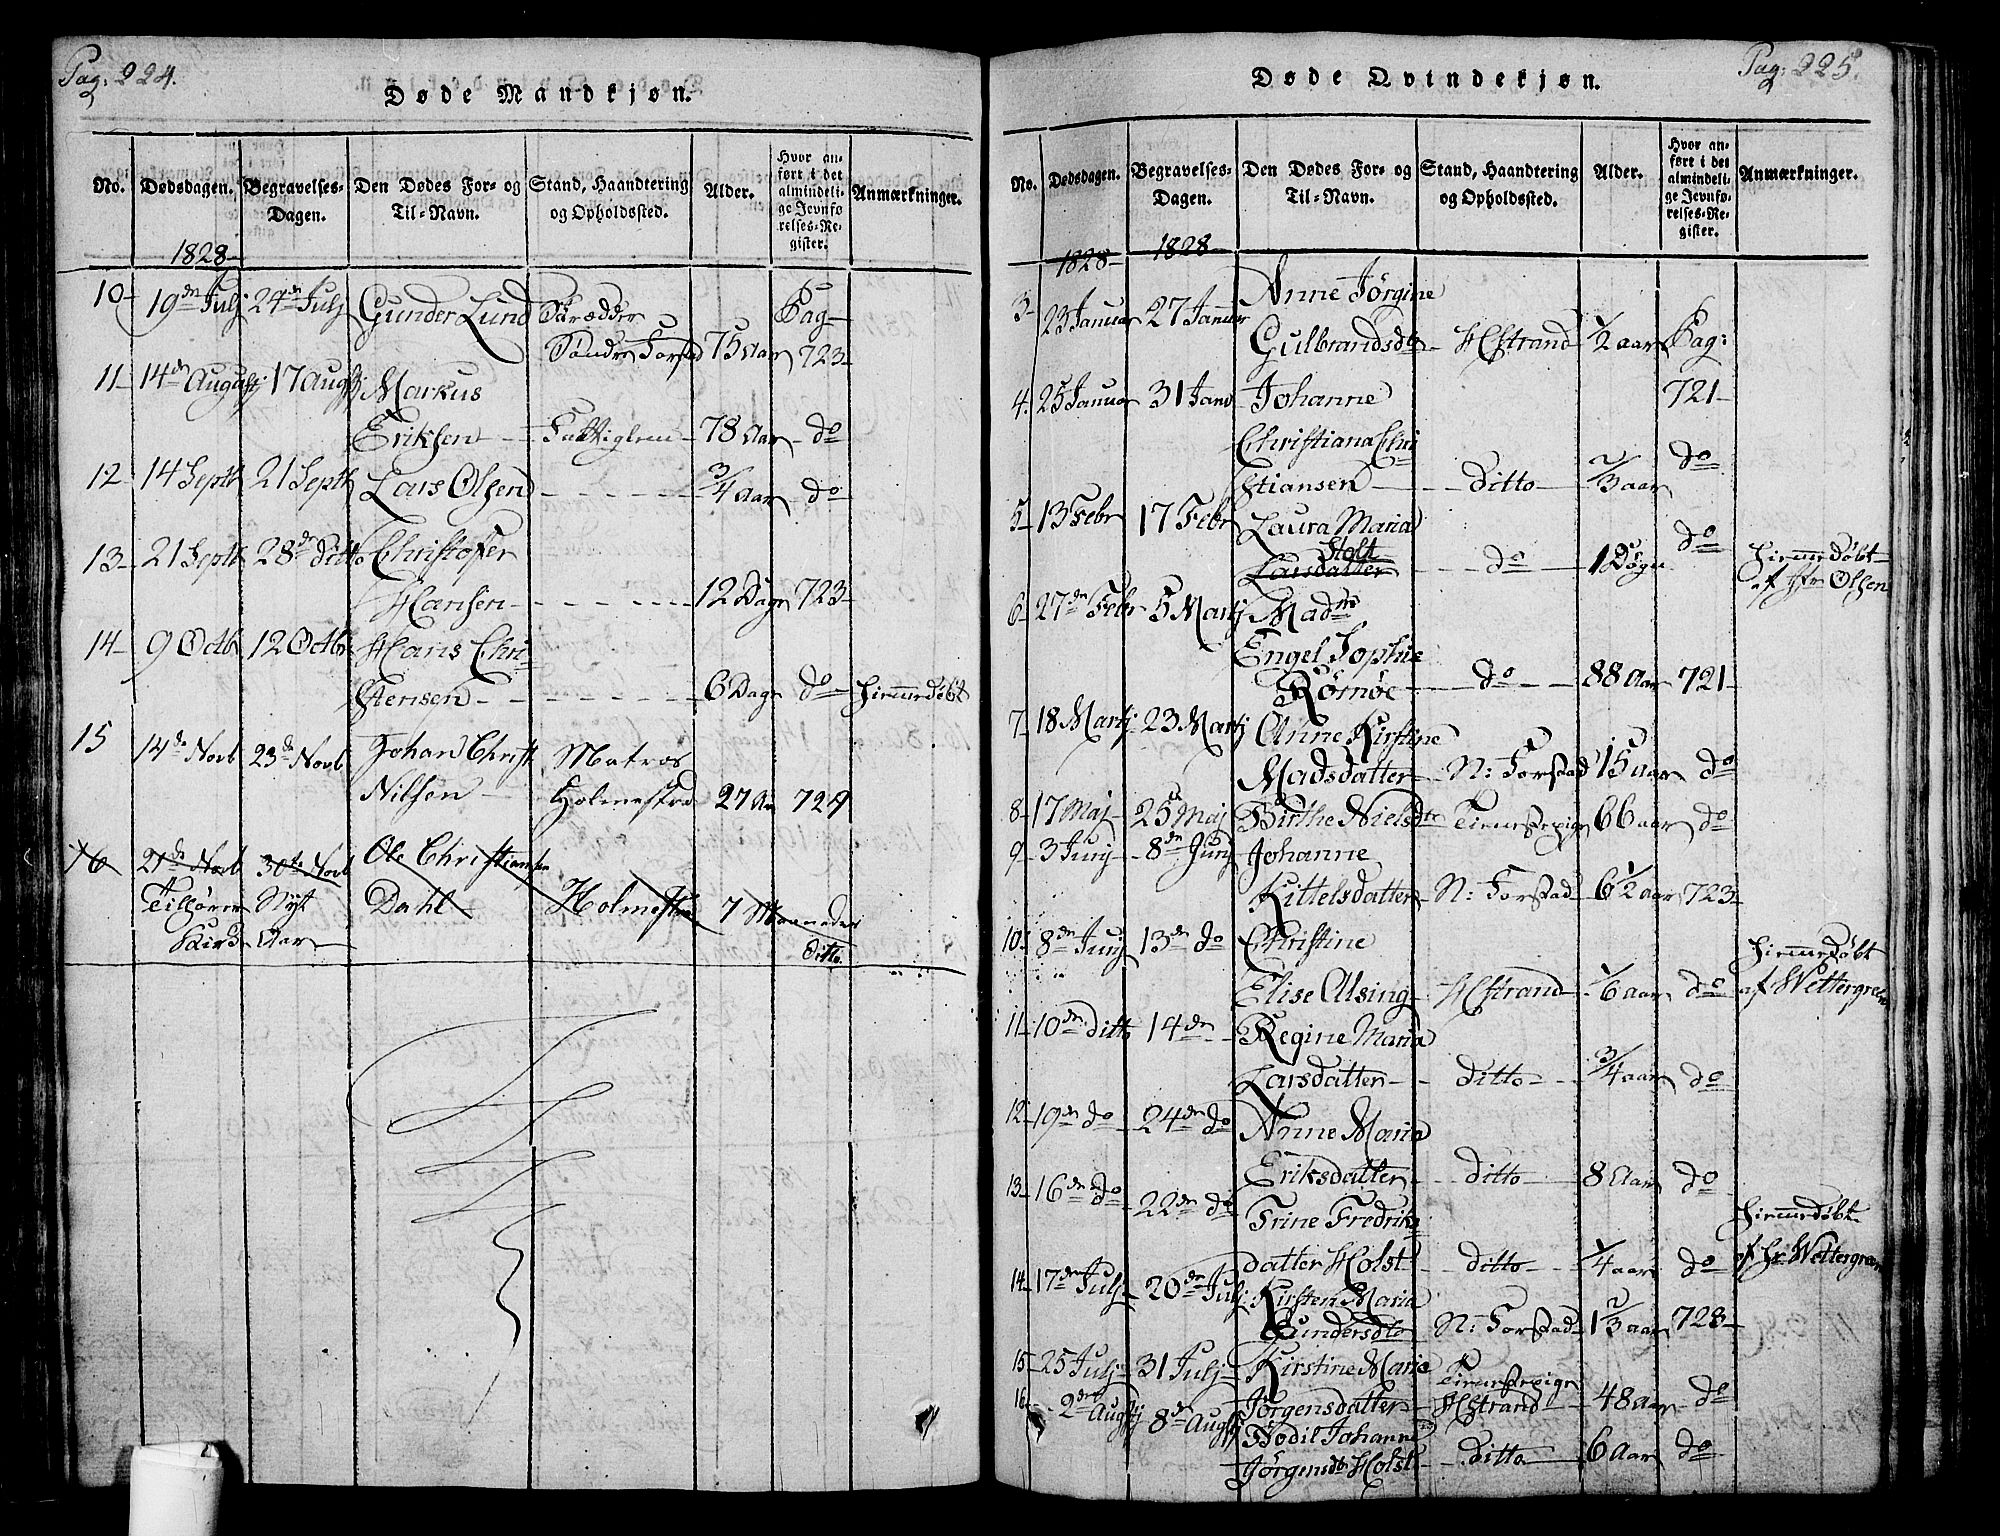 Pag: 224.
Døde Mandkjøn.
No. Dødsdagen. Begravelses-Dagen. Den Dødes For- og Til-Navn. Stand, Haandtering og Opholdssted. Alder. Hvor anført i det almindelige Jevnførelses-Register. Anmærkninger.
1828
10 19de Julj 24de Julj Gunder Lund Skrædder Pag
Søndre Forstad 75 Aar 723
11 14de Augustj 17 Augstj Markus
Eriksen Fattiglem 78 Aar do
12 14 Septb 21 Septb Lars Olsen 3/4 Aar do
13 21 Septb 28de ditto Christoffer
Hansen 12 Dage 723
14 9 Octb 12 Octbr Hans Chri-
stensen 6 Dage do Hiemmedøbt
15 14de Novb 23de Novb Johan Christ Matros
Nilsen Holmestra 27 Aar 724
16 21de Novb 30te Novb Ole Christiansen
Tilhører Nyt Dahl Holmestra 7 Maaneder
Kird Aar ditto
Pag: 225.
Døde Qvindekjøn.
No. Dødsdagen. Begravelses-Dagen. Den Dødes For- og Til-Navn. Stand, Haandtering og Opholdssted. Alder. Hvor anført i det almindelige Jevnførelses-Register. Anmærkninger.
1828 1828
3 23 Januar 27 Januar Anne Jørgine
Gulbrandsdtr Hstrand 1/2 aar Pag:
4. 25 Januar 31 Janv Johanne 721
Christiana Chri
stiansen ditto 2/3 aar do
5 13 Febr 17 Febr Laura Maria
Stolt
Larsdatter do 1 Døgn do Hiemmedøbt
af Hr Olsen
6 27de Febr 5 Martj Madme
Engel Sophie
Rørnøe do 88 Aar 721
7 18 Martj 23 Martj Anne Kirstine
Madsdatter N: Forstad 15 aar do
8 17 Maj 25 Maj Birthe Nielsdtr Tienstepige 66 aar do
9 3 Junj 8de Junj Johanne
Kittelsdatter N: Forstad 6 1/2 aar 723
10 8de Junj 13de do Christine Hiemmedøbt
Elise Alsing Hstrand 1/6 aar do af Wettergreen
11 10de ditto 14de Regine Maria
Larsdatter ditto 3/4 aar do
12 19de do 24de do Anne Maria
Eriksdatter ditto 8 Aar do
13 16de do 22de do Trine Fredriks Hiemmedøbt
datter Holst ditto 1/4 aar do af Hr Wettergreen
14 17de Julj 20de Julj Kirsten Maria
Gundersdtr N: Forstad 1 2/3 aar 723
15 25 Julj 31 Julj Kirstine Marie Tienstepige
Jørgensdatter Hstrand 48 Aar do
16 2den Augstj 8de Augstj Bodil Johanne
Jørgensdtr Holst ditto 6 Aar do